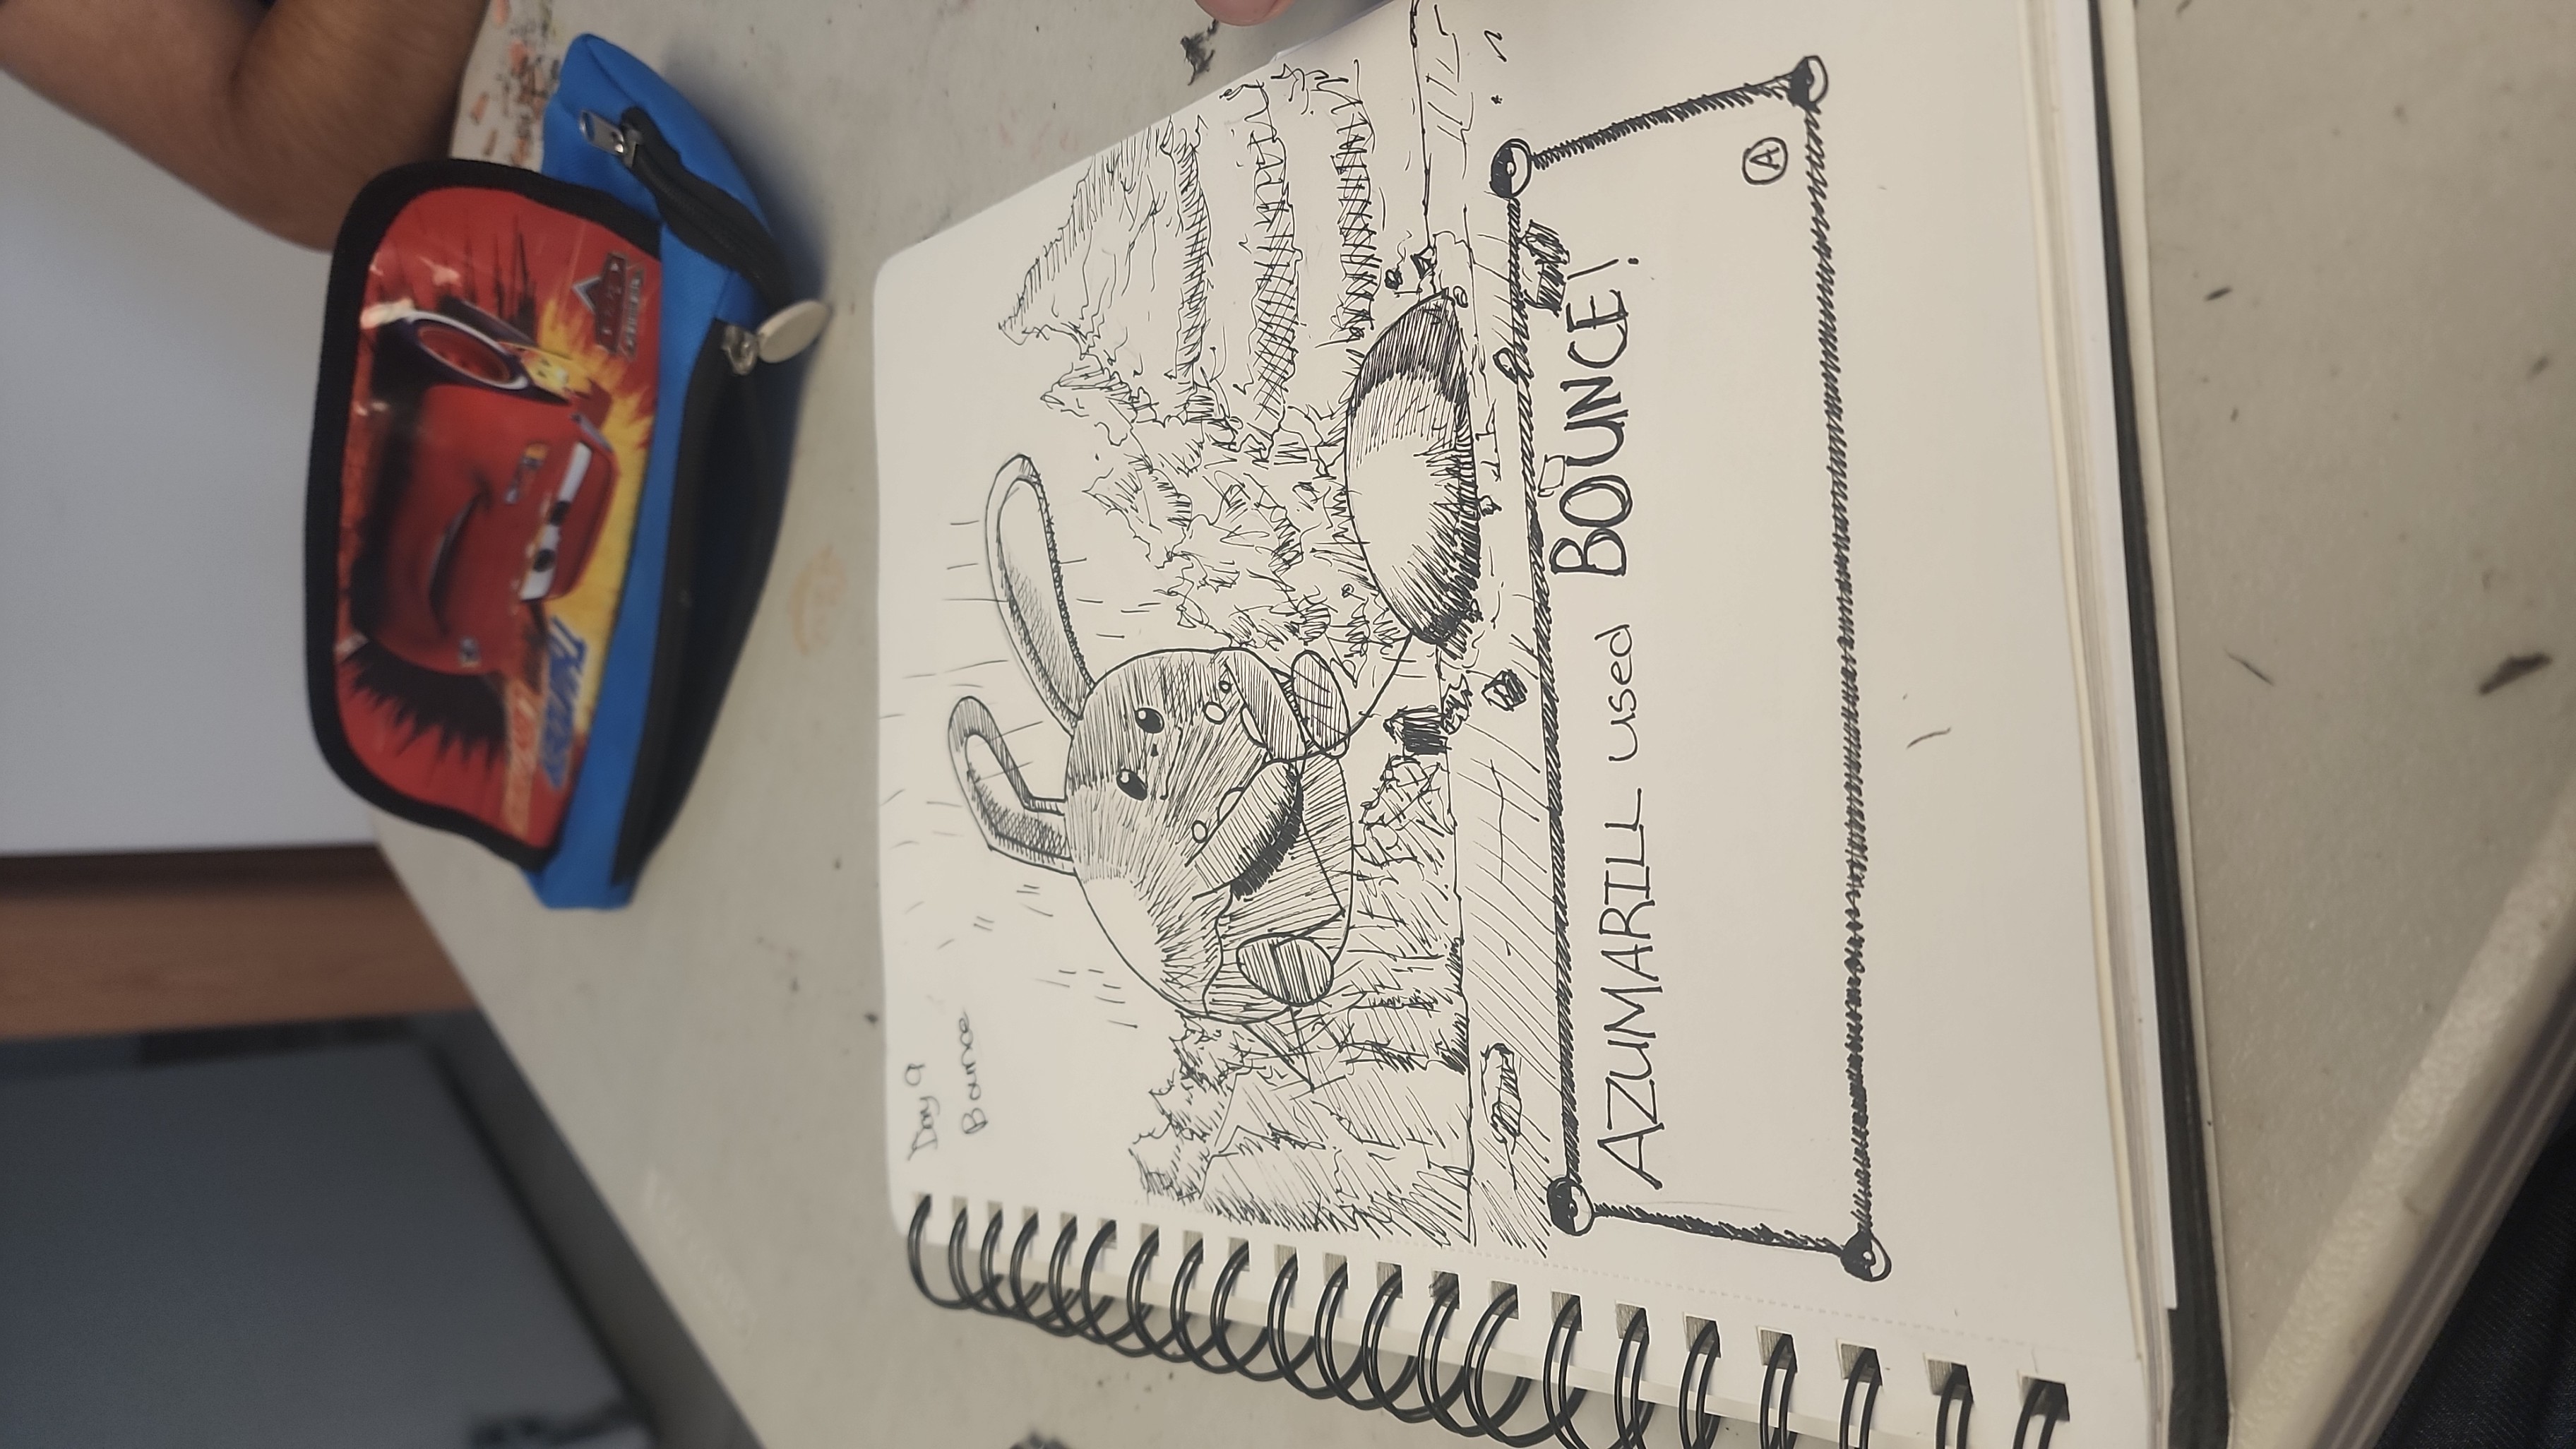 THUNDER
Day 9
Bounce
AZUMARILL used BOUNCE!
A